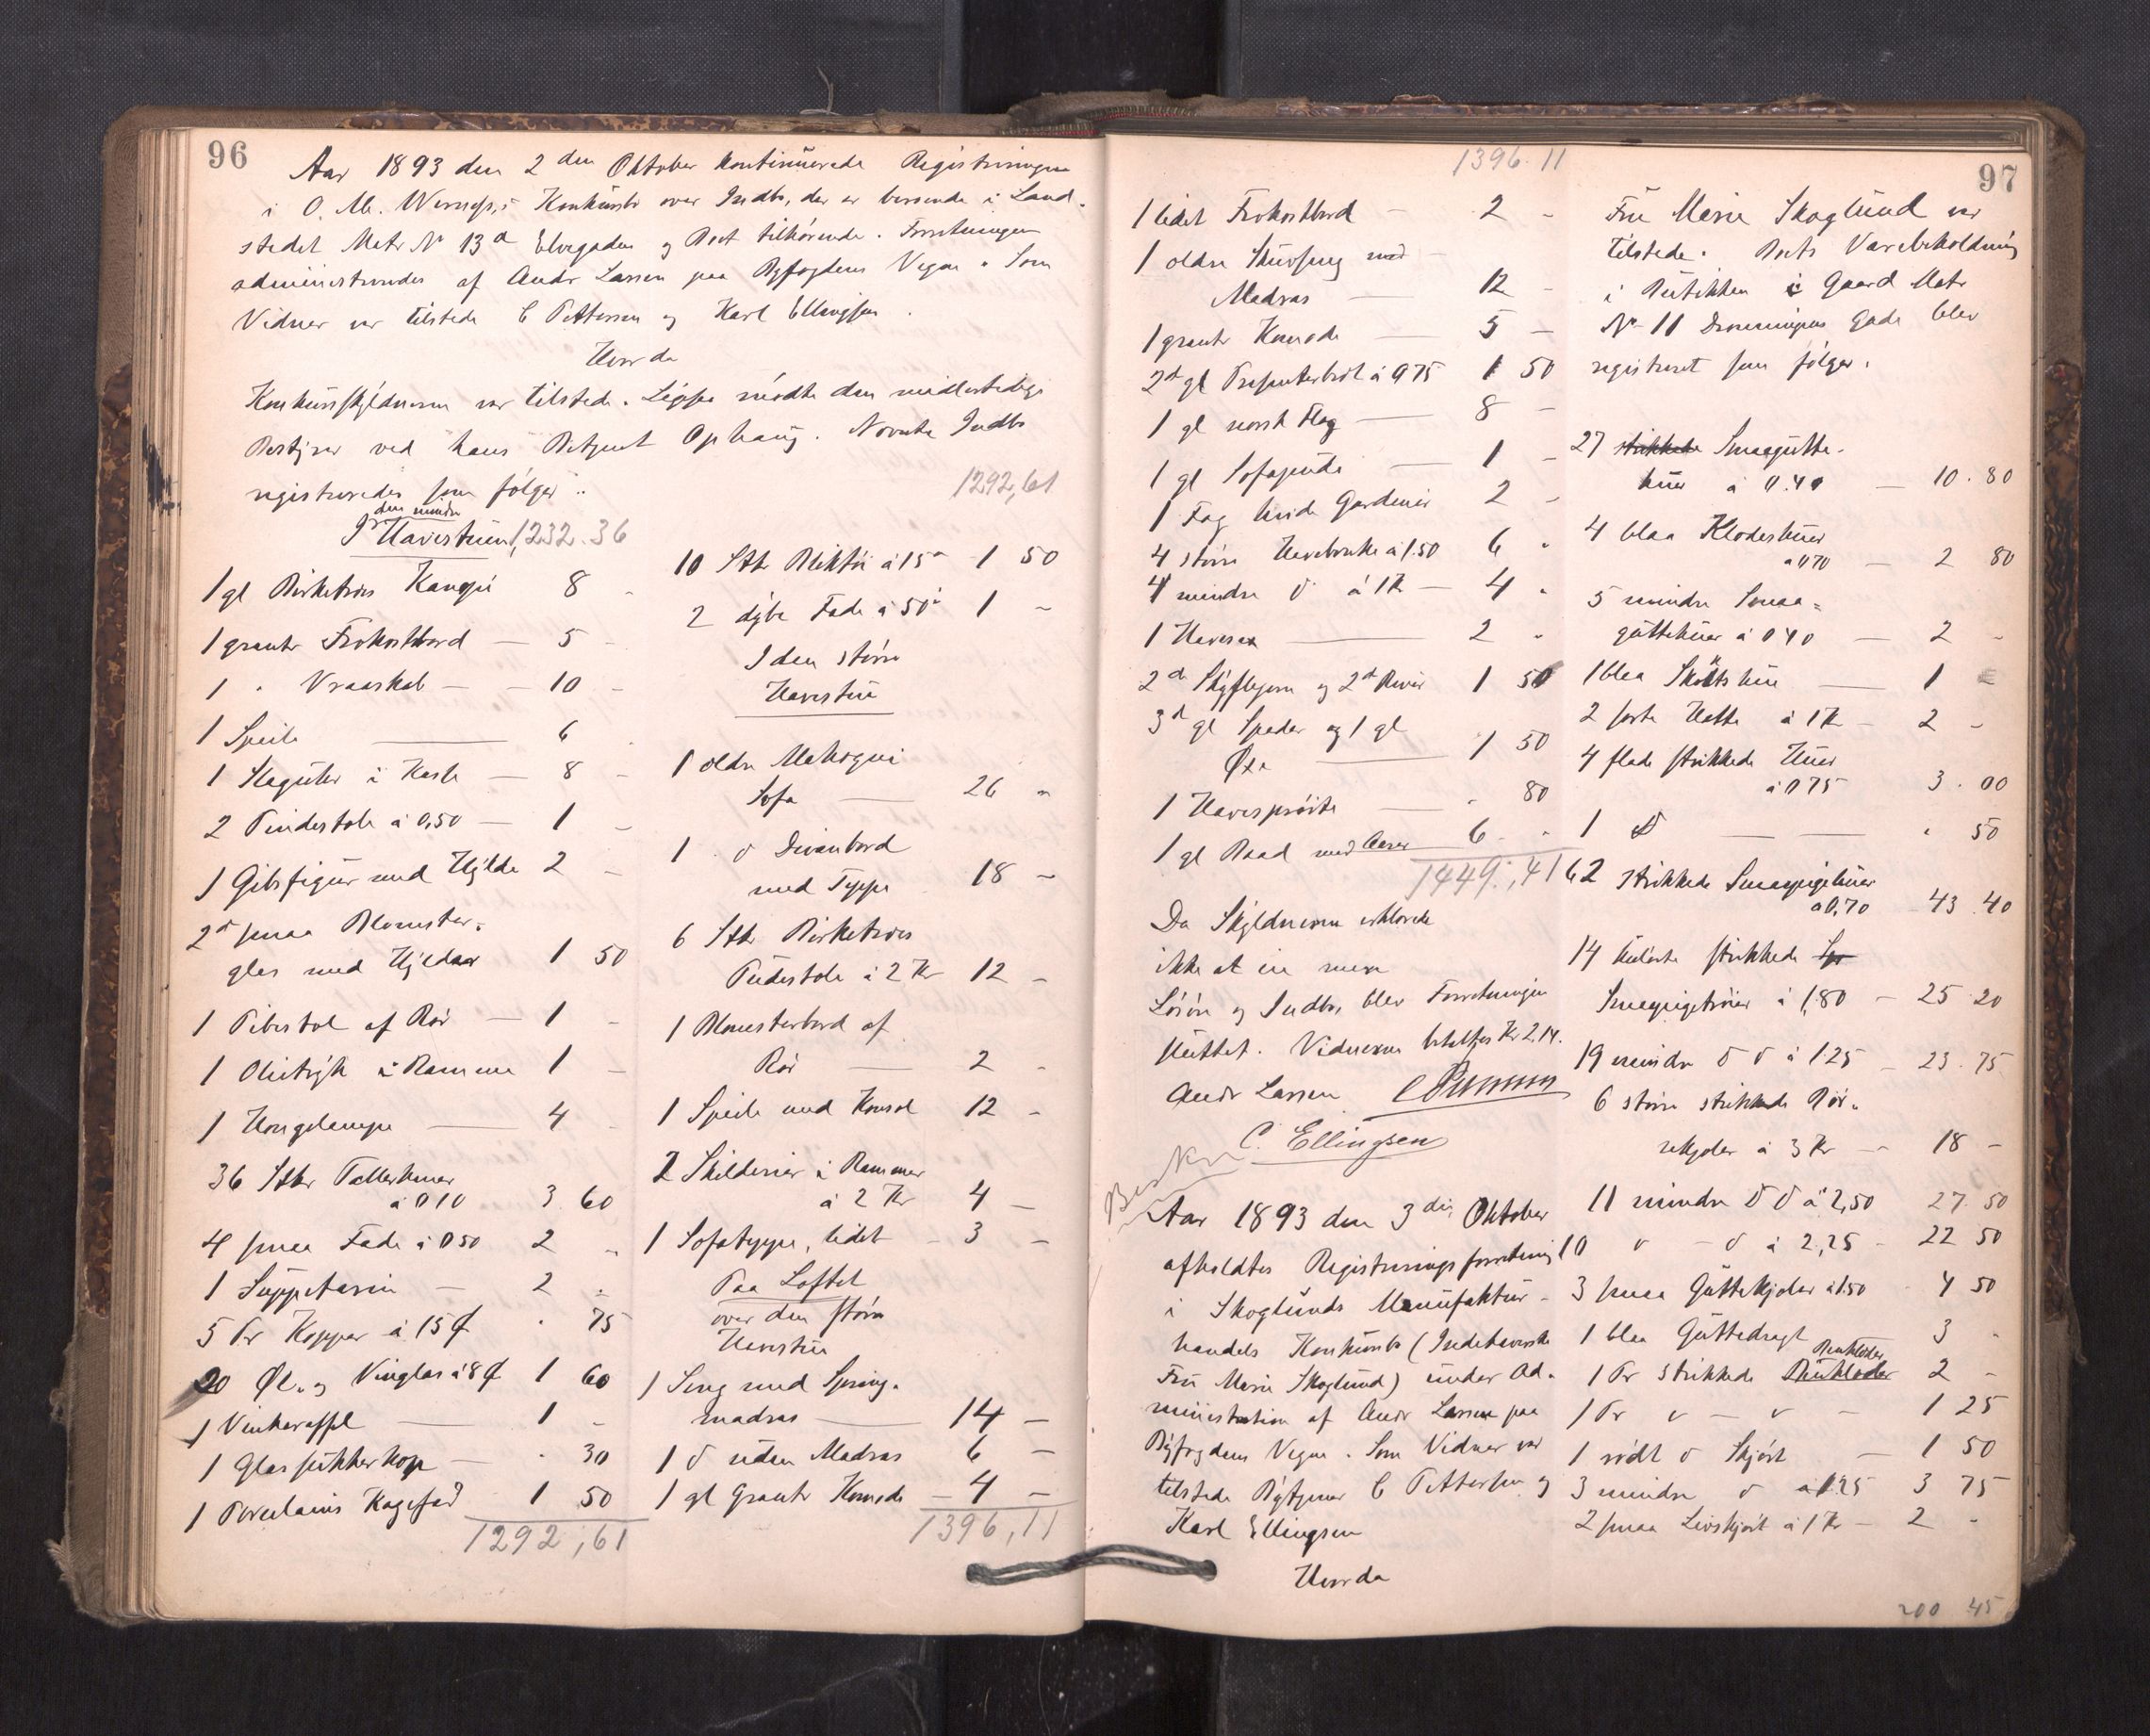 96
Aar 1893 den 2 den Oktober kontinuerede Registreringen
i O. M. Konkursbo over Indbo, der er beroende i Land-
stedet Matr No 13 a Elvegaden og Boet tilhörende. Forretningen
administreredes af Andr Larsen paa Byfogdens Vegne. Som
Vidner var tilstede C Pettersen og Karl Ellingsen.
Hvorda
Konkursskyldneren var tilstede. Ligesaa mödte den midlertidige
Bestyrer ved hans Betjent Ophaug. Indbo
registreredes som fölger:
1292,61
den mindre
I Havestuen 1,232.36
1 gl Birketræs Kanape 8 -
1 grauty Frokostbord 5 -
1 " Vraaskab 10 -
1 Speile 6
1 Staguhr i Kasse 8 -
2 Pindestole à 0,50 1 -
1 Gibsfigur med Hylde 2 -
2 smaa Blomster-
glas med Hylder 1 50
1 Pibestol af Rör 1 -
1 Olietryk i Ramme 1 -
1 Hængelampe 4 -
36 Stkr Tallerkener
à 0 10 3.60
4 smaa Fade à 0 50 2 "
1 Suppeterin 2 "
5 Pr Kopper à 15 Ø " 75
20 Øl- og Vinglas à 8 Ø 1 60
1 Vinkaraffel 1 -
1 Glas sukkerkop " 30
1 Porcelains Kagefad 1 50
1292,61
10 Stkr Bliktöi à 15 1 50
2 dybe Fade à 50 1 -
I den större
Havestue
1 oldre Mahogni
Sofa 26 "
1 d Divanbord
med Teppe 18 -
6 Stkr Birketræs
Pudestole à 2 Kr 12 -
1 Blomsterbord af
Rör 2 -
1 Speile med Konsol 12 -
2 Skilderier i Rammer
à 2 Kr 4 -
1 Sofateppe, lidet 3 -
Paa Loftet
over den större
Havestue
1 Seng med Spring-
madras 14 -
1 d uden Madras 6 -
1 gl Komode 4 -
1396,11
97
1396.11
1 lidet Frokostbord 2 -
1 oldre Skuvseng med
Madras 12 -
1 Komode 5 -
2 gl à 0 75 1 50
1 gl norsk Flag 8 -
1 gl Sofapude 1 -
1 Fag hvide Gardiner 2 -
4 större Havebænke à 1.50 6 "
4 mindre d à 1 Kr 4 "
1 Havesax 2 "
2 Skyfljern og 2 River 1 50
3 gl Spader og 1 gl
Øxe 1 50
1 Havespröite " 80
1 gl Baad med Aarer 6 "
1449,41
Da Skyldneren erklærede
ikke at eie mere
Lösöre og Indbo, blev Forretningen
sluttet. Vidnerne betaltes Kr 2,14.
Andr Larsen
C. Ellingsen
Aar 1893 den 3 die Oktober
afholdtes Registreringsforretning
i Skoglunds Manufaktur-
handels Konkursbo (Indehaverske
Fru Marie Skoglund) under Ad-
ministration af Andr Larsen paa
Byfogdens Vegne. Som Vidner var
tilstede Bytjener C Pettersen og
Karl Ellingsen
Hvorda
Fru Marie Skoglund var
tilstede. Boets Varebeholdning
i Butikken i Gaard Matr
No 11 Dronningens Gade blev
registreret som fölger.
27 strikkede Smaagutte-
huer à 0.40 10.80
4 blaa Klædeshuer
à 0 70 2 80
5 mindre Smaa-
guttehuer à 0 40 2 -
1 blaa Skotshue 1
2 sorte Hatte à 1 Kr 2 -
4 flade strikkede Huer
à 0 75 3.00
1 d " 50
62 strikkede Smaapigehuer
à 0,70 43.40
14 strikkede
Smaapigetröier à 1,80 25 20
19 mindre d d à 1.25 23.75
6 större strikkede Bör-
nekjoler à 3 Kr 18 -
11 mindre d d à 2,50 27.50
10 d - d à 2,25 22 50
3 smaa Guttekjoler à 1.50 4 50
1 blaa Guttedragt 3 -
Benklæder
1 Pr strikkede Benklæder 2 -
1 Pr d - d 1 25
1 rödt d Skjört 1 50
3 mindre d à 1 25 3 75
2 smaa Livskjört à 1 Kr 2 -
200 45